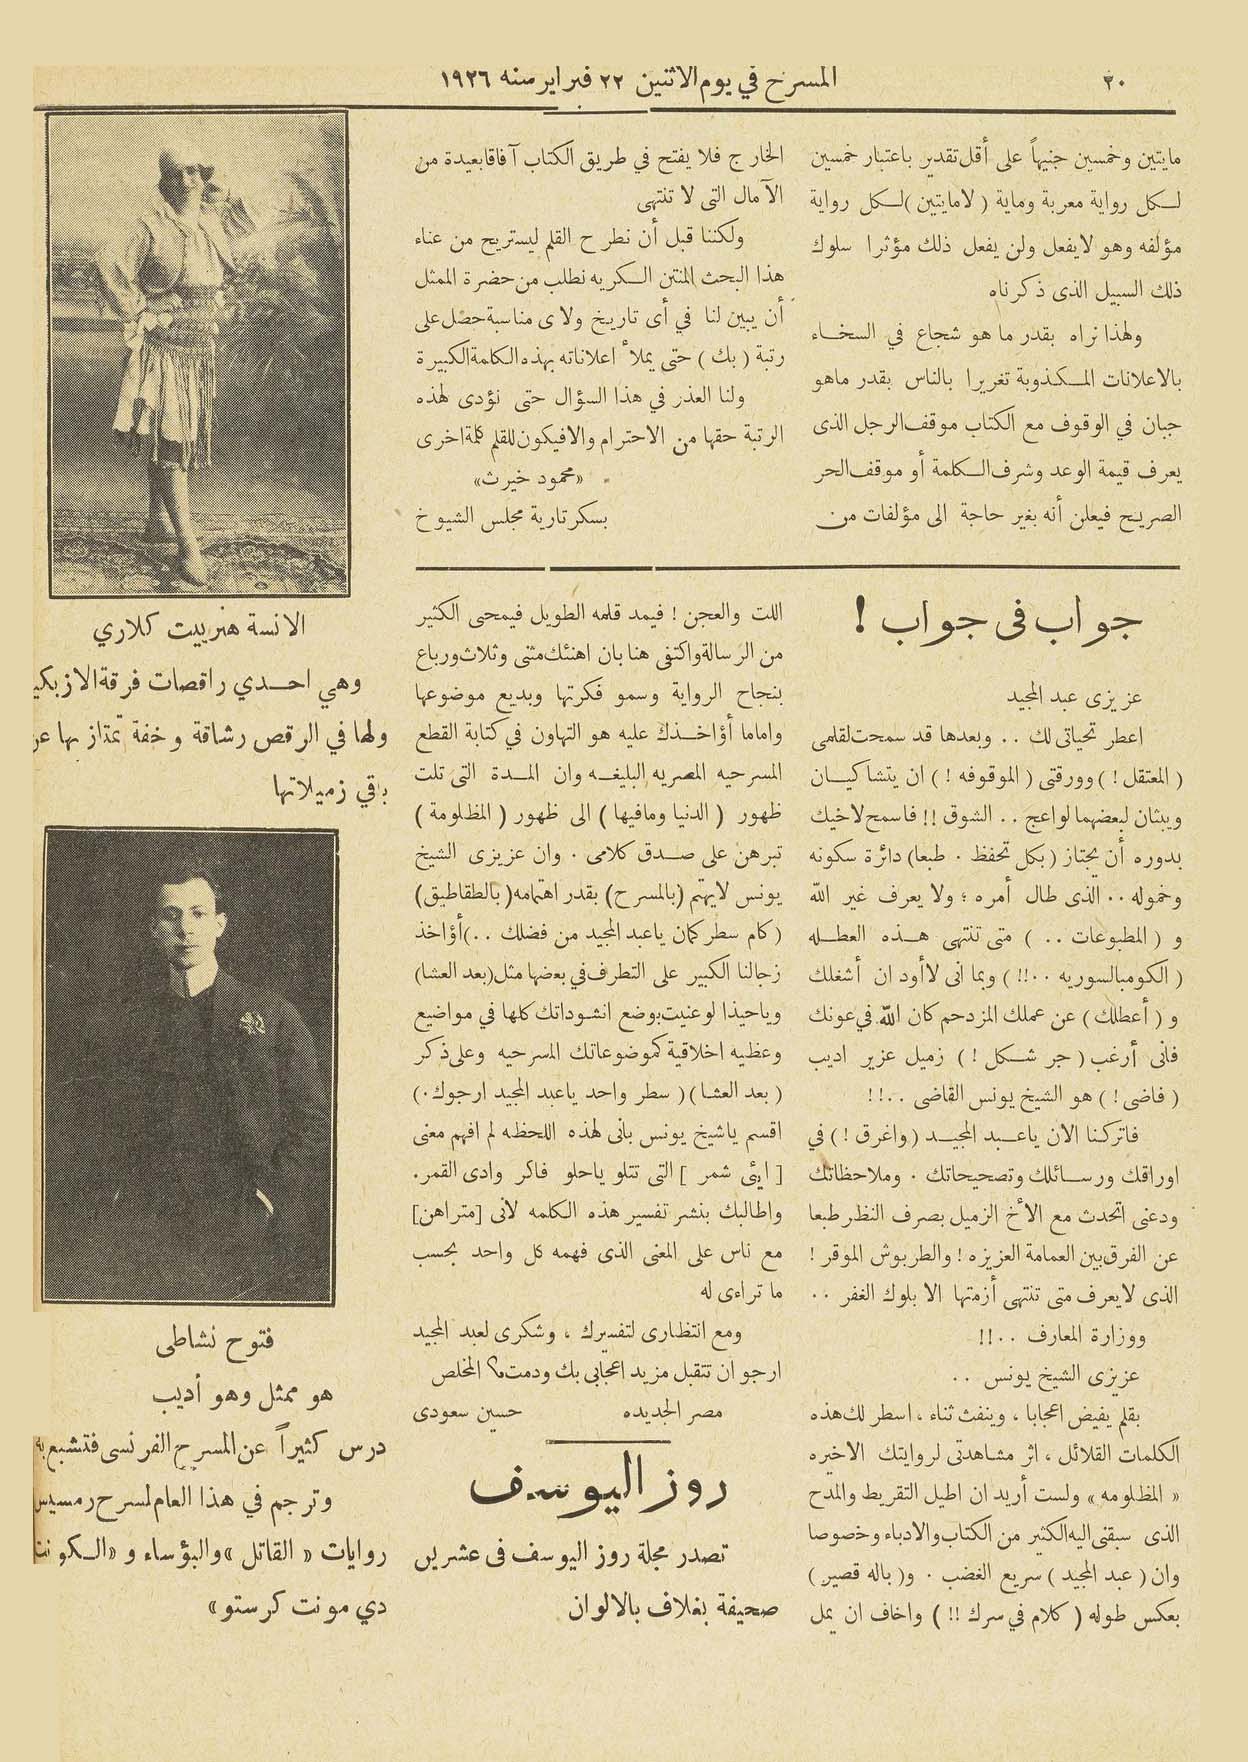 ٢٠
المسرح في يوم الاثنين ٢٢ فبراير سنه ١٩٢٦
مايتين وخمسين جنيهاً على أقل تقدير باعتبار خمسين
لكل رواية معربة وماية ( لا مايتين ) لكل رواية
مؤلفه وهو لا يفعل ولن يفعل ذلك مؤثرا سلوك
ذلك السبيل الذى ذكرناه
ولهذا نراه بقدر ما هو شجاع في السخاء
بالاعلانات المكذوبة تغريرا بالناس بقدر ماهو
جبان في الوقوف مع الكتاب موقف الرجل الذى
يعرف قيمة الوعد وشرف الكلمة أو موقف الحر
الصريح فيعلن أنه بغير حاجة الى مؤلفات من
الخارج فلا يفتح في طريق الكتاب آفاقا بعيدة من
الآمال التى لا تنتهى
ولكننا قبل أن نطرح القلم ليستريح من عناء
هذا البحث المنتن الكريه نطلب من حضرة الممثل
أن يبين لنا في أى تاريخ ولاى مناسبة حصل على
رتبة ( بك ) حتى يملأ اعلاناته بهذه الكلمة الكبيرة
ولنا العذر في هذا السؤال حتى نؤدى لهذه
الرتبة حقها من الاحترام والا فيكون للقلم كلمة اخرى
« محمود خيرت »
بسكرتارية مجلس الشيوخ
جواب فى جواب !
عزيزى عبد المجيد
اعطر تحياتى لك .. وبعدها قد سمحت لقلمى
( المعتقل ! ) وورقتى ( الموقوفه ! ) ان يتشاكيان
ويبثان لبعضهما لواعج .. الشوق !! فاسمح لاخيك
بدوره أن يجتاز ( بكل تحفظ . طبعا ) دائرة سكونه
وخموله .. الذى طال أمره ؛ ولا يعرف غير الله
و ( المطبوعات .. ) متى تنتهى هذه العطله
( الكومبالسوريه ..!! ) وبما انى لا أود ان أشغلك
و ( أعطلك ) عن عملك المزدحم كان الله في عونك
فانى أرغب ( جر شكل ! ) زميل عزيز اديب
( فاضى ! ) هو الشيخ يونس القاضى ..!!
فاتركنا الان يا عبد المجيد ( واغرق ! ) في
اوراقك ورسائلك وتصحيحاتك . وملاحظاتك
ودعنى اتحدث مع الأخ الزميل بصرف النظر طبعا
عن الفرق بين العمامة العزيزه ! والطربوش الموقر !
الذى لا يعرف متى تنتهى أزمتها الا بلوك الغفر ..
ووزارة المعارف ..!!
عزيزى الشيخ يونس ..
بقلم يفيض اعجابا ، وينفث ثناء ، اسطر لك هذه
الكلمات القلائل ، اثر مشاهدتى لروايتك الاخيره
« المظلومه » ولست أريد ان اطيل التقريط والمدح
الذى سبقنى اليه الكثير من الكتاب والادباء وخصوصا
وان ( عبد المجيد ) سريع الغضب . و ( باله قصير )
بعكس طوله ( كلام في سرك !! ) واخاف ان يمل
اللت والعجن ! فيمد قلمه الطويل فيمحى الكثير
من الرسالة واكتفى هنا بان اهنئك مثنى وثلاث ورباع
بنجاح الرواية وسمو فكرتها وبديع موضوعها
واما ما أؤاخذك عليه هو التهاون في كتابة القطع
المسرحيه المصريه البليغه وان المدة التى تلت
ظهور ( الدنيا ومافيها ) الى ظهور ( المظلومة )
تبرهن على صدق كلامى . وان عزيزى الشيخ
يونس لا يهتم ( بالمسرح ) بقدر اهتمامه ( بالطقاطيق )
( كام سطر كمان ياعبد المجيد من فضلك .. ) أؤاخذ
زجالنا الكبير على التطرف في بعضها مثل ( بعد العشا )
وياحيذا لو عنيت بوضع انشوداتك كلها في مواضيع
وعظيه اخلاقية كموضوعاتك المسرحيه وعلى ذكر
( بعد العشا ) ( سطر واحد ياعبد المجيد ارجوك . )
اقسم ياشيخ يونس بانى لهذه اللحظه لم افهم معنى
[ ايئى شمر ] التى تتلو ياحلو فاكر وادى القمر .
واطالبك بنشر تفسير هذه الكلمه لانى [ متراهن ]
مع ناس على المعنى الذى فهمه كل واحد بحسب
ما تراءى له
ومع انتظارى لتفسيرك ، وشكرى لعبد المجيد
ارجو ان تتقبل مزيد اعجابى بك ودمت ؟ المخلص
مصر الجديده حسين سعودى
روز اليوسف
تصدر مجلة روز اليوسف فى عشرين
صحيفة بغلاف بالالوان
الانسة هنرييت كلاري
وهي احدي راقصات فرقة الازبكي
ولها في الرقص رشاقة وخفة تمتاز بها عن
باقي زميلاتها
فتوح نشاطى
هو ممثل وهو أديب
درس كثيراً عن المسرح الفرنسى فتشبع به
وترجم في هذا العام لمسرح رمسيس
روايات « القاتل » والبؤساء و « الكونت
دي مونت كرستو »